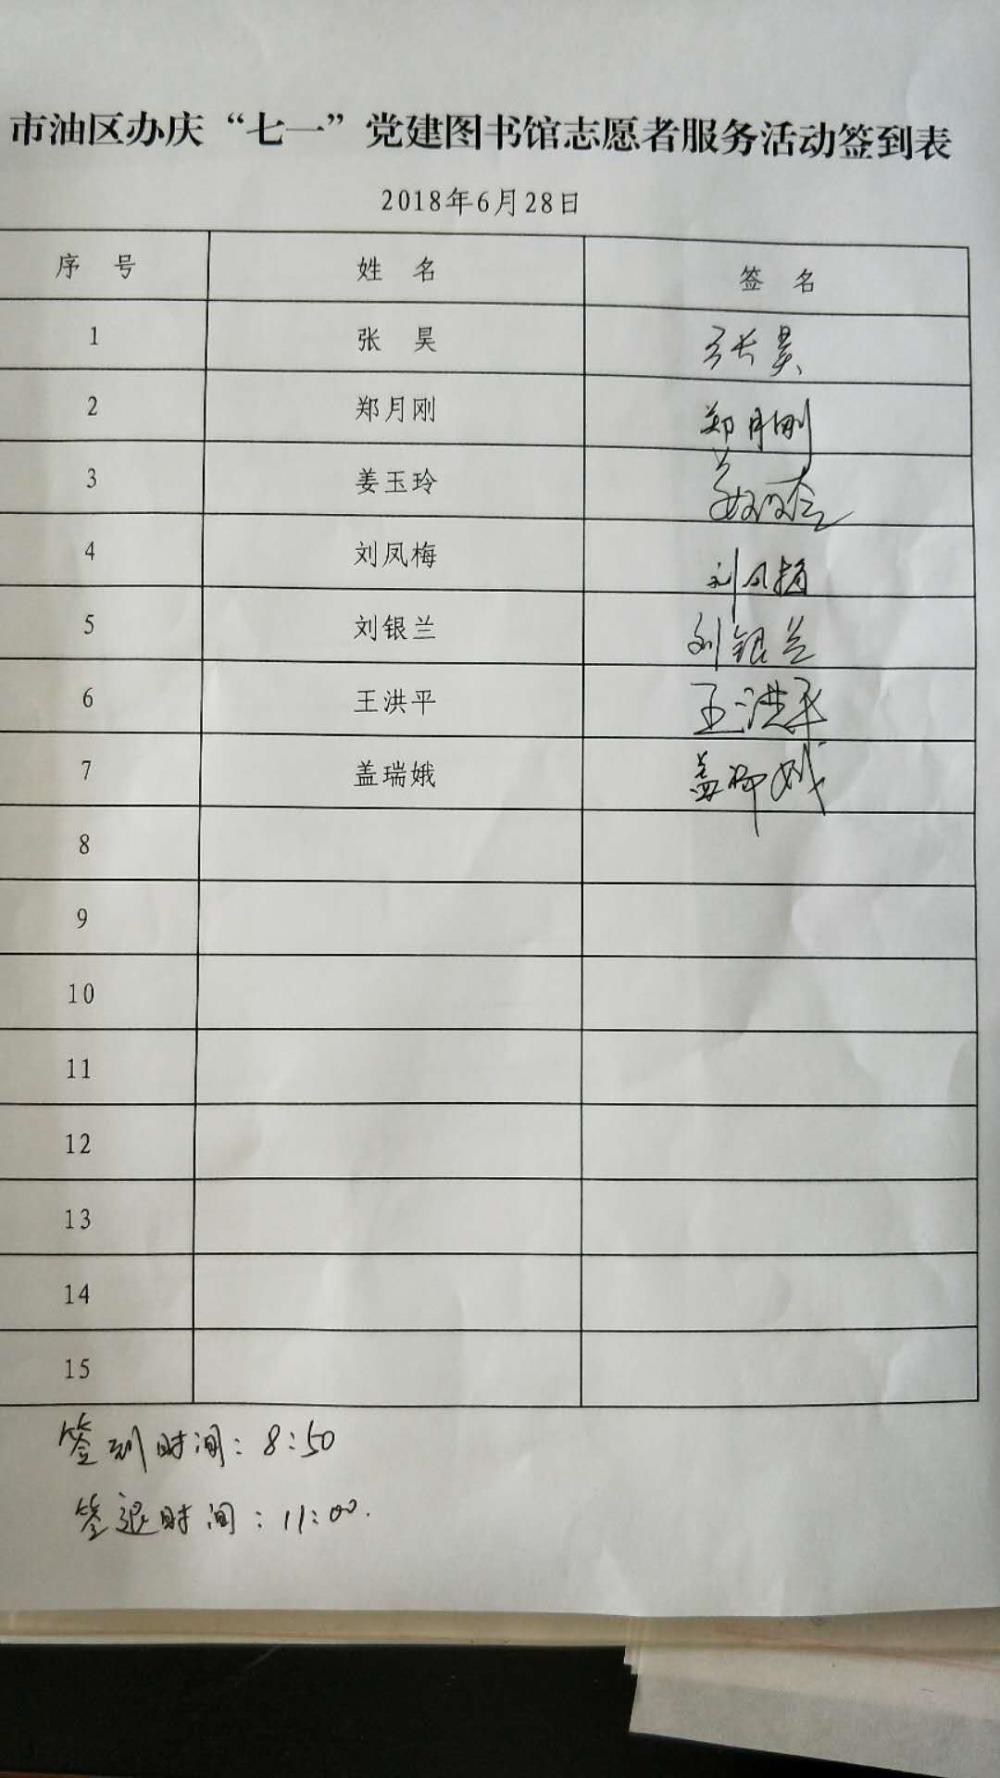 市油区办庆“七一”党建图书馆志愿者服务活动签到表
2018年6月28日
序 号 姓 名 签 名
1 张 昊 张昊
2 郑月刚 郑月刚
3 姜玉玲 姜玉玲
4 刘凤梅 刘凤梅
5 刘银兰 刘银兰
6 王洪平 王洪平
7 盖瑞娥 盖瑞娥
8
9
10
11
12
13
14
15
签到时间：8:50
签退时间：11:00.